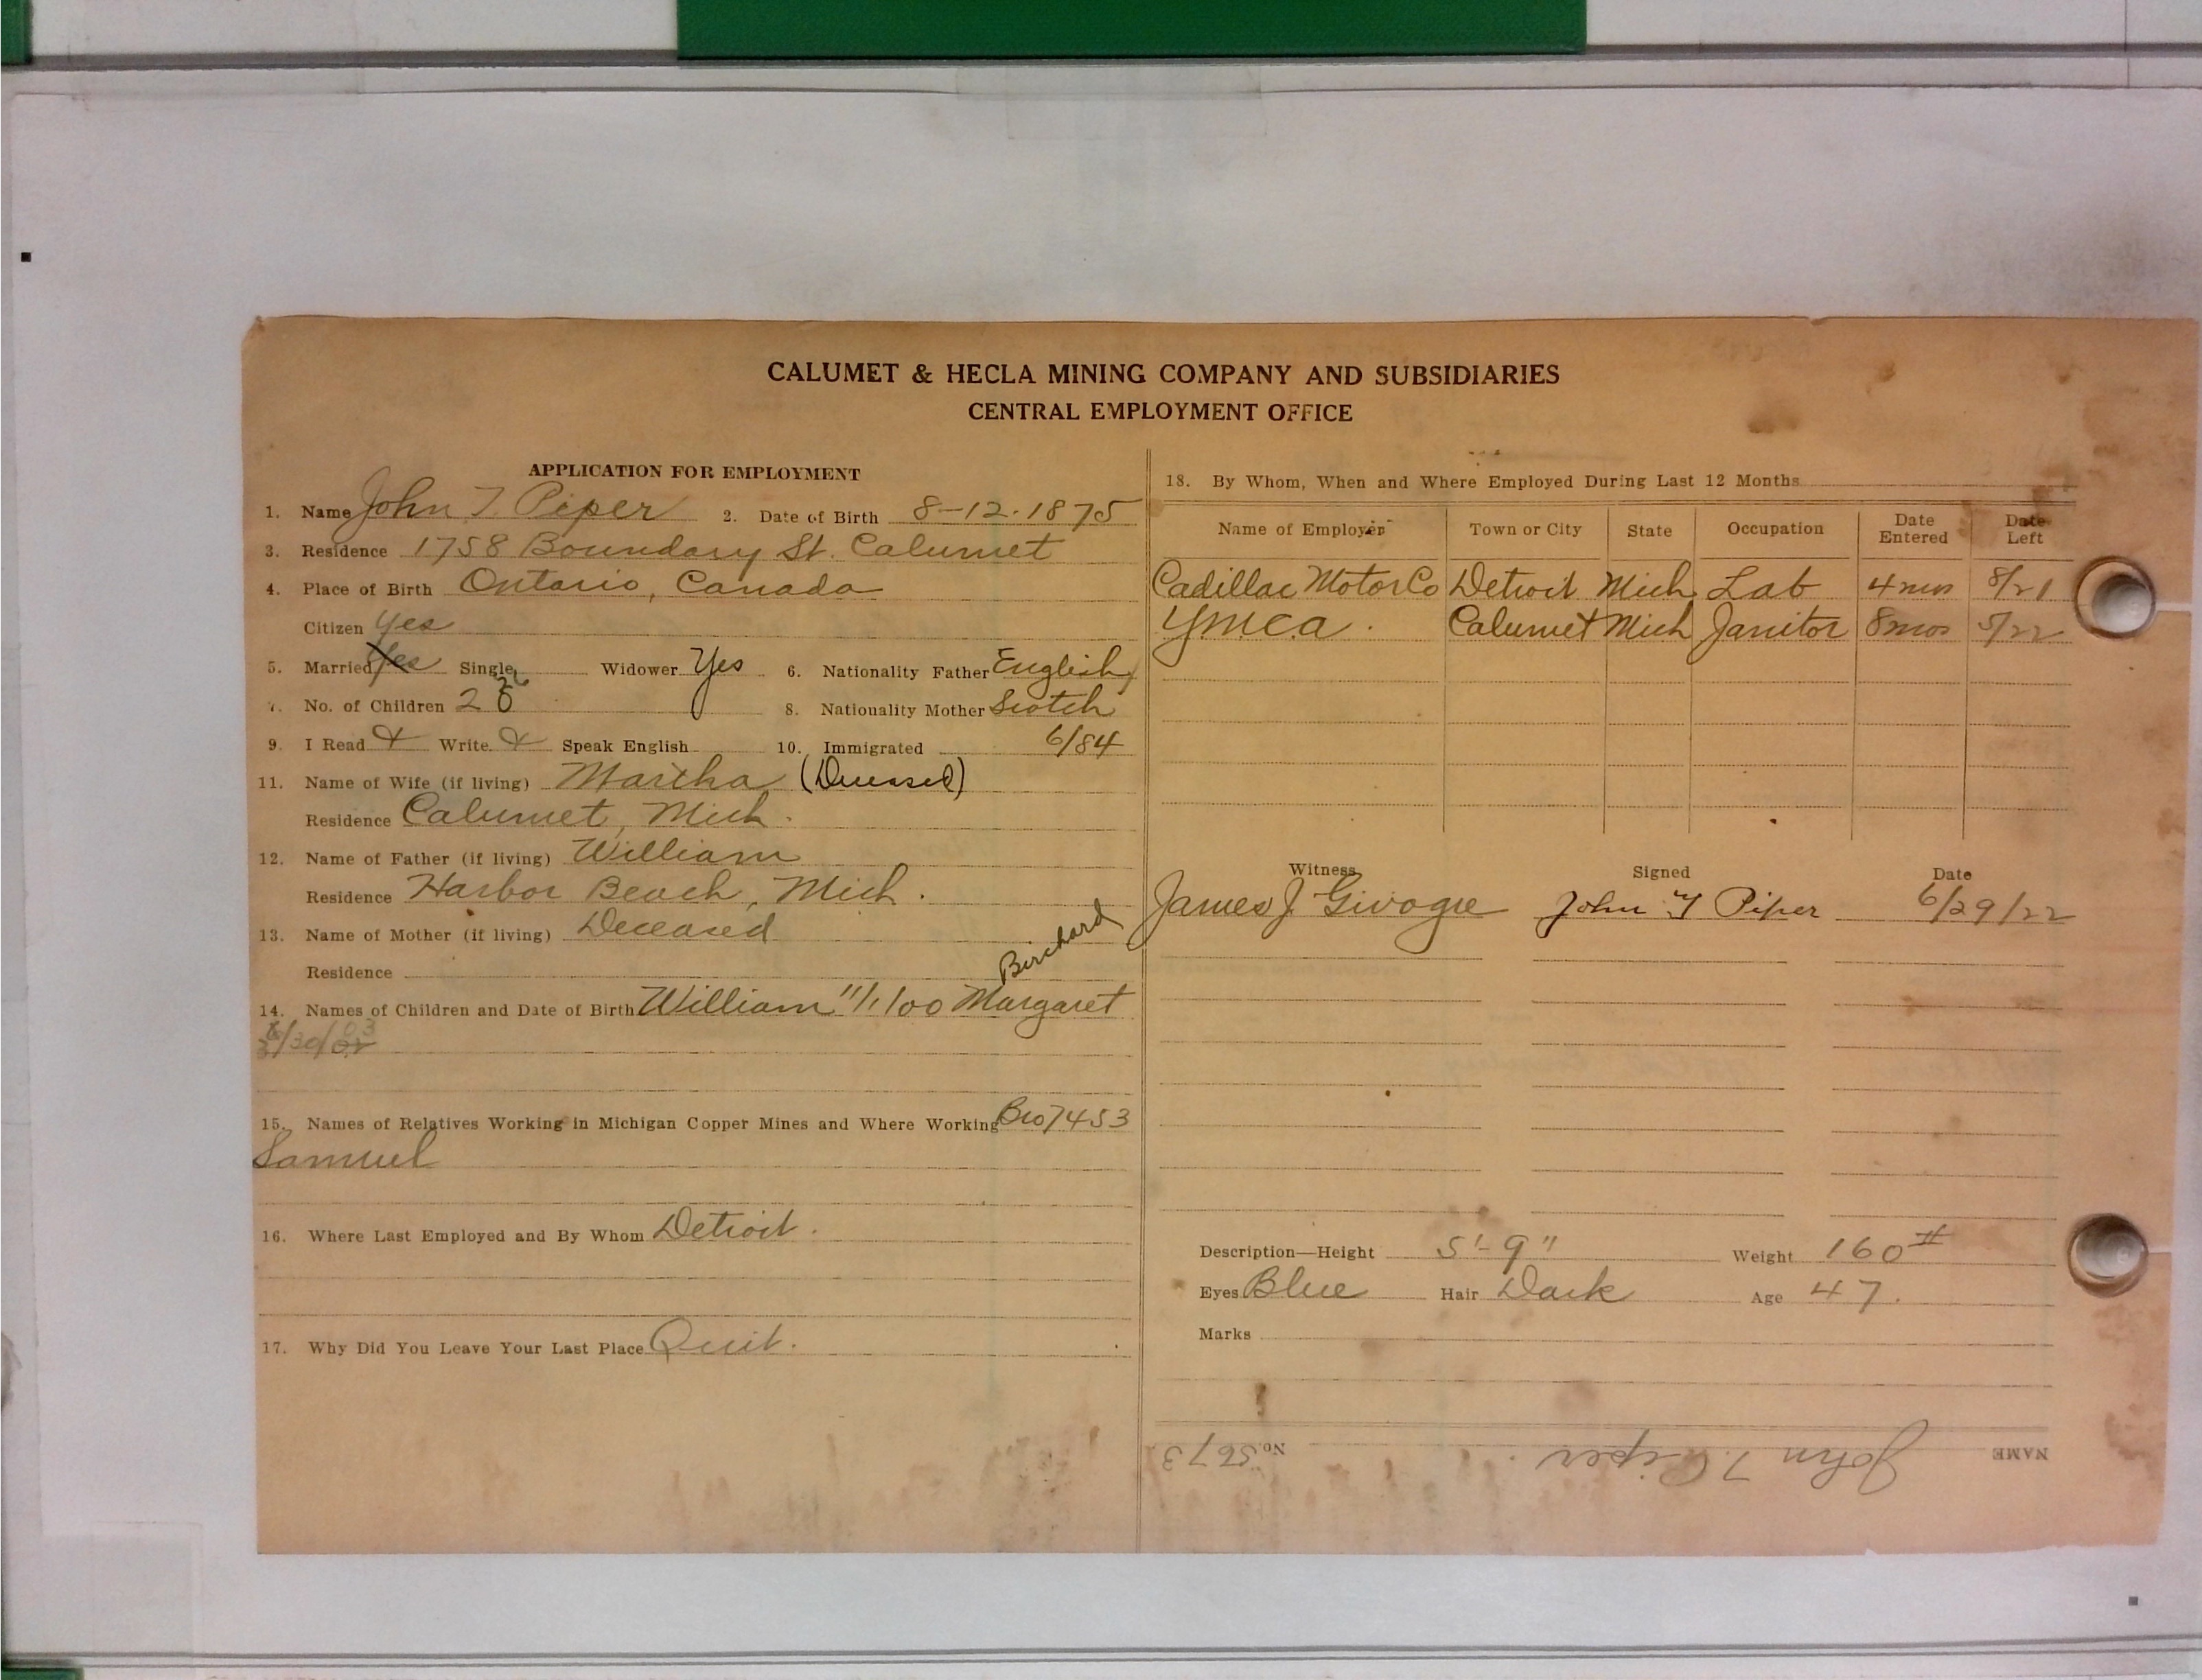 CALUMET & HECLA MINING COMPANY AND SUBSIDIARIES
CENTRAL EMPLOYMENT OFFICE
APPLICATION FOR EMPLOYMENT
1. Name John T Piper 2. Date of Birth 8-12-1875
3. Residence 1758 Boundary St. Calumet
4. Place of Birth Ontario, Canada
Citizen Yes
5. Married Yes Single Widower Yes 6. Nationality Father English
7. No. of Children 2 8. Nationality Mother Scotch
9. I Read & Write & Speak English 10. Immigrated 6/84
11. Name of Wife (if living) Martha (Deceased)
Residence Calumet, Mich.
12. Name of Father (if living) William
Residence Harbor Beach, Mich.
13. Name of Mother (if living) Deceased
Residence
Birchard
14. Names of Children and Date of Birth William 11/1/00 Margaret
/30/03
15. Names of Relatives Working in Michigan Copper Mines and Where Working Bro 7453
Samuel
16. Where Last Employed and By Whom Detroit.
17. Why Did You Leave Your Last Place Quit.
18. By Whom, When and Where Employed During Last 12 Months
Name of Employer Town or City State Occupation Date Entered Date Left
Cadillac Motor Co Detroit Mich Lab 4 mos 8/21
YMCA. Calumet Mich Janitor 8 mos 5/22
Witness Signed Date
James J. Givogre John T Piper 6/29/22
Description—Height 5'-9" Weight 160#
Eyes Blue Hair Dark Age 47.
Marks
NAME John T. Piper. No. 5673